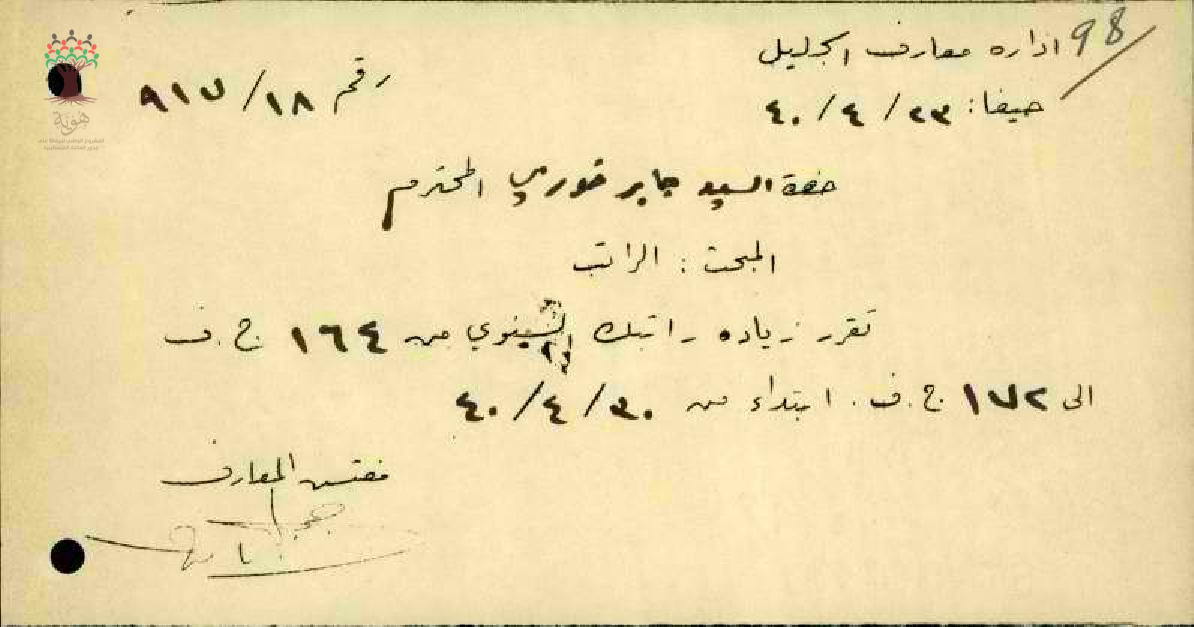 98
اداره معارف الجليل
حيفا: ٢٣/٤/٤٠
رقم ٩١٧/١٨
حضرة السيد جابر خوري المحترم
المبحث: الراتب
تقرر زياده راتبك السنوي من ١٦٤ ج.ف
الى ١٧٢ ج.ف. ابتداء من ٣٠/٤/٤٠
مفتش المعارف
هوية